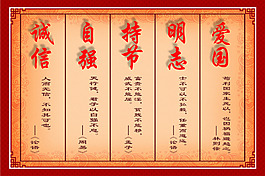 爱国
苟利国家生死以，岂因祸福避趋之。
——林则徐
明志
士不可以不弘毅，任重而道远。
——《论语》
持节
富贵不能淫，贫贱不能移，
威武不能屈。
——《孟子》
自强
天行健，君子以自强不息。
——《周易》
诚信
人而无信，不知其可也。
——《论语》